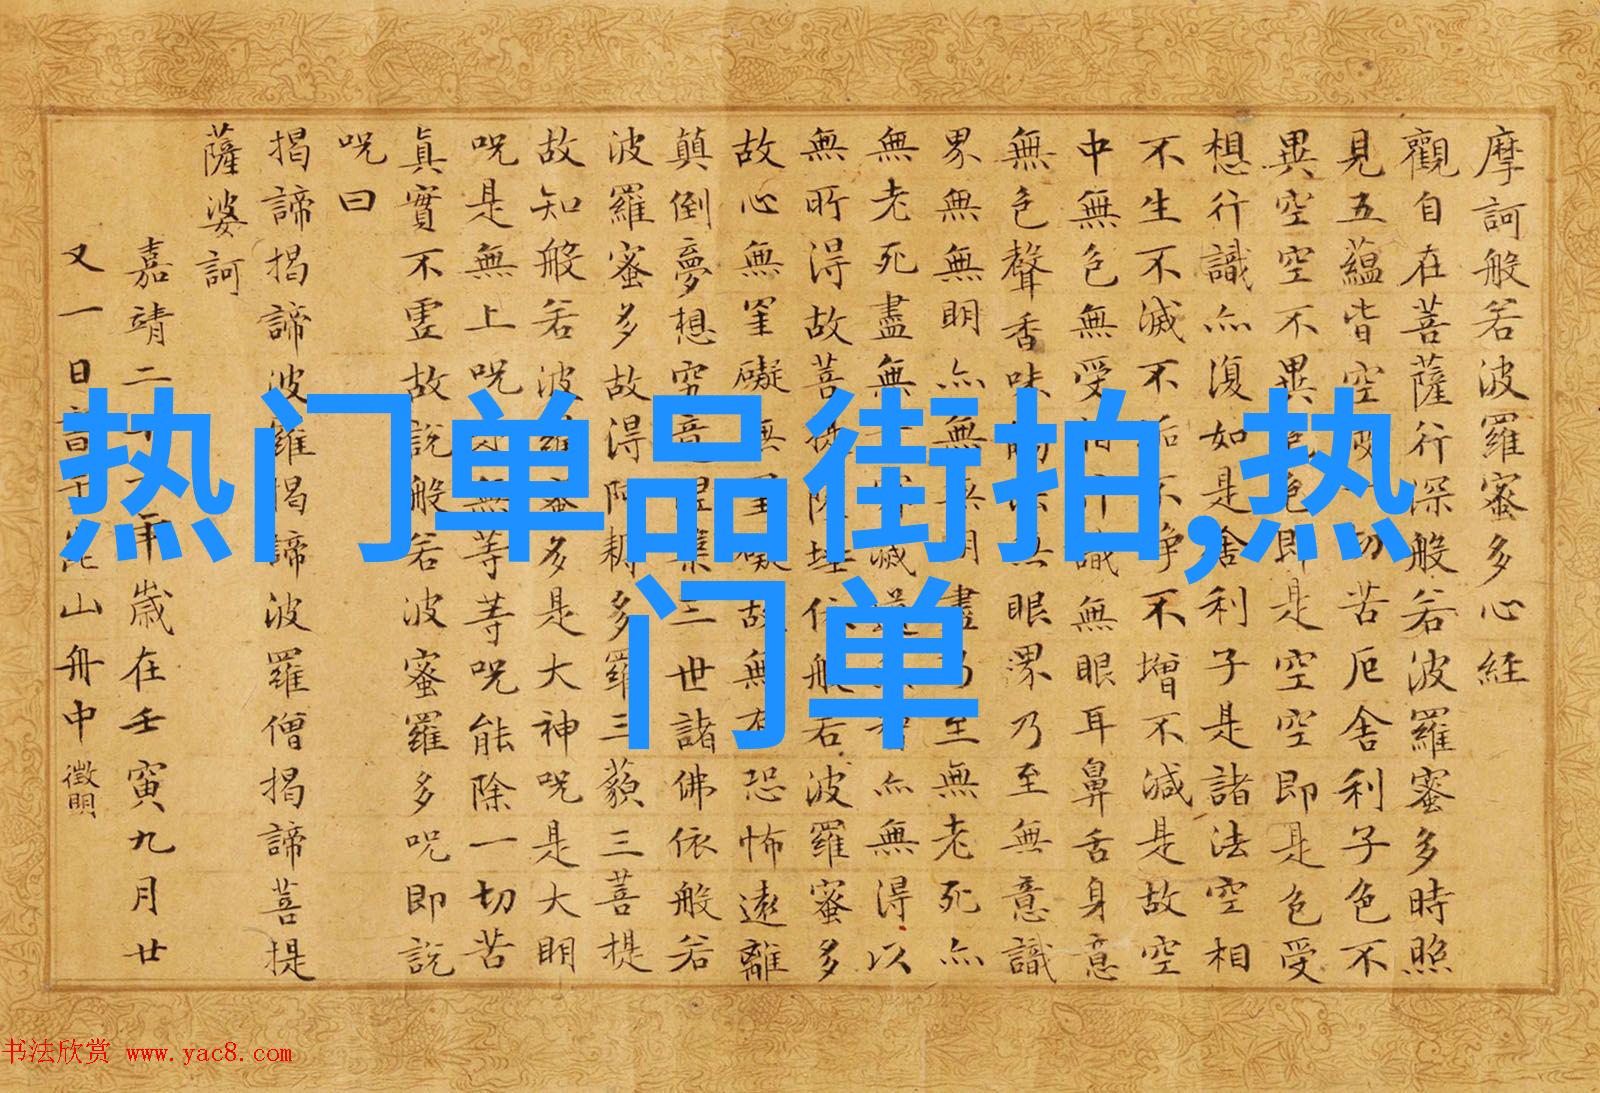 摩訶般若波羅蜜多心経
觀自在菩薩行深般若波羅蜜多時照
見五蘊皆空切苦厄舍利子色不
異空空不異色色即是空空即是色受
想行識亦復如是舍利子是諸法空相
不生不滅不垢不淨不增不減是故空
中無色無受想行識無眼耳鼻舌身意
無色聲香味觸法無眼界乃至無意識
界無無明亦無無明盡乃至無老死亦
無老死盡無滅道亦無得以
無所得故菩提薩埵依般若波羅蜜多
故心無罣礙無罣礙故無有恐怖遠離
顛倒夢想究竟涅槃三世諸佛依般若
波羅蜜多故得阿耨多羅三藐三菩提
故知般若波羅蜜多是大神呪是大明
呪是無上呪是無等等呪能除一切苦
真實不虛故說般若波羅蜜多呪即說
呪曰
揭諦揭諦波羅揭諦波羅僧揭諦菩提
薩婆訶
嘉靖二十一年歲在壬寅九月廿
又一日書于崑山舟中 徵明
热门单品街拍,热
门单
书法欣赏 www.yac8.com